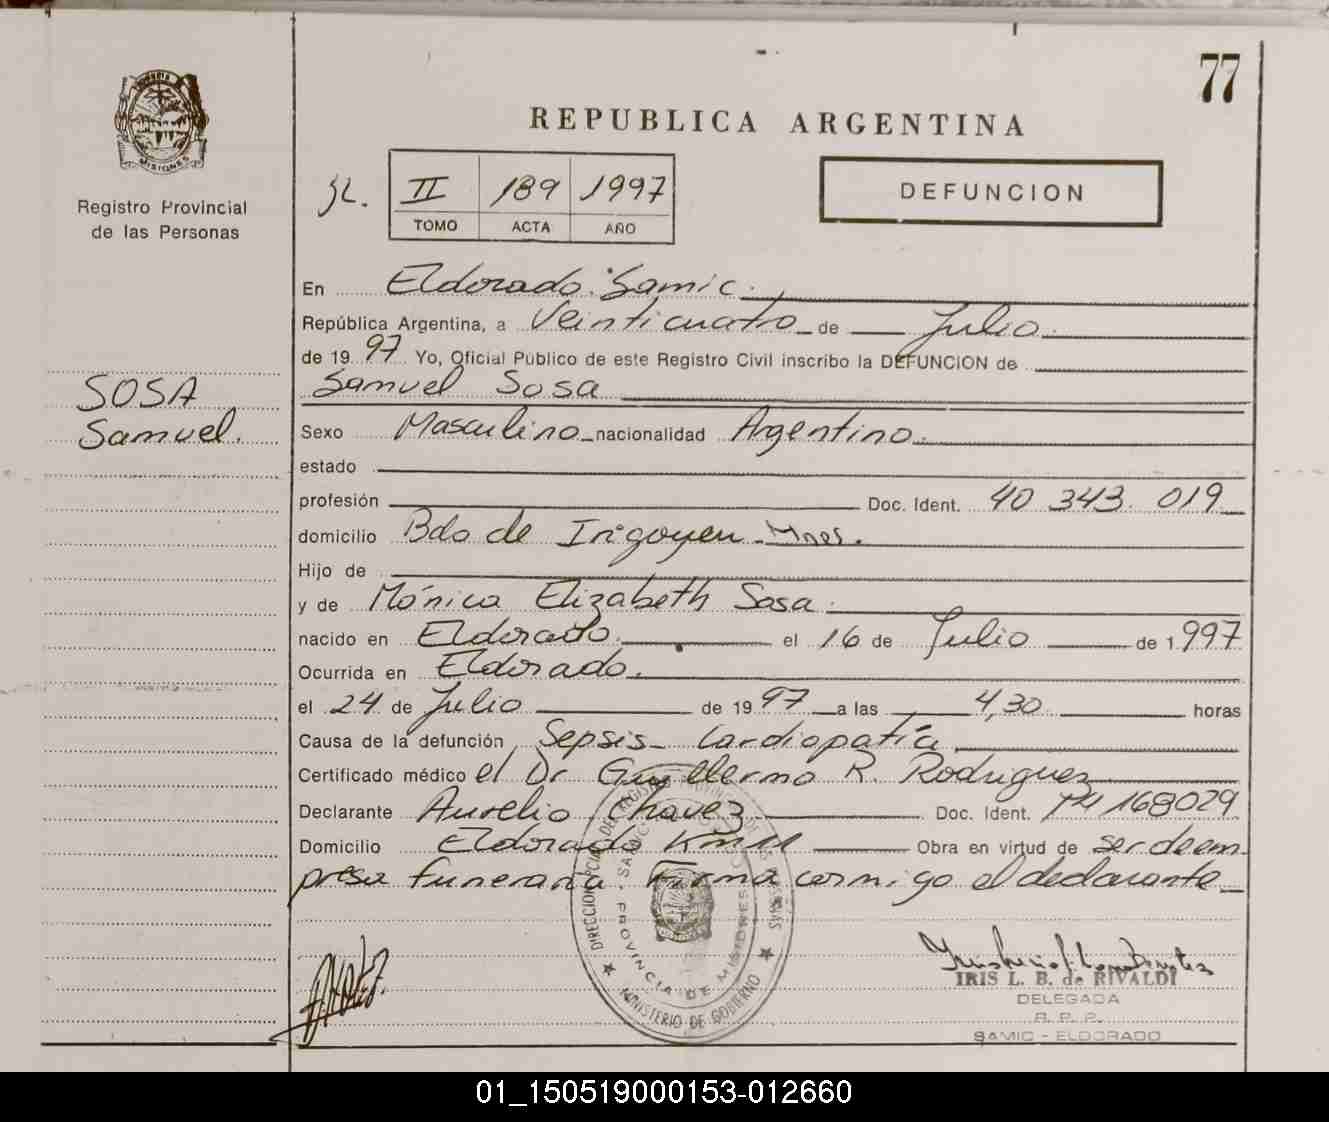 77
REPUBLICA ARGENTINA
MISIONES
Registro Provincial
de las Personas
II 189 1997
TOMO ACTA AÑO
DEFUNCION
SOSA
Samuel.
En Eldorado. Samic.
República Argentina, a Veinticuatro de Julio
de 1997 Yo, Oficial Público de este Registro Civil inscribo la DEFUNCION de
Samuel Sosa
Sexo Masculino nacionalidad Argentino.
estado
profesión Doc. Ident. 40 343 019
domicilio Bdo de Irigoyen - Mnes.
Hijo de
y de Mónica Elizabeth Sosa.
nacido en Eldorado. el 16 de Julio de 1997
Ocurrida en Eldorado.
el 24 de Julio de 1997 a las 4,30 horas
Causa de la defunción Sepsis - Cardiopatía
Certificado médico el Dr Guillermo R. Rodriguez
Declarante Aurelio Chavez Doc. Ident. M 168029
Domicilio Eldorado Km 11 Obra en virtud de ser de em
presa funeraria Firma conmigo el declarante
DIRECCION PCIAL. DEL REGISTRO PROVINCIAL DE LAS PERSONAS
PROVINCIA DE MISIONES
MINISTERIO DE GOBIERNO
IRIS L. B. de RIVALDI
DELEGADA
R. P. P.
SAMIC - ELDORADO
01_150519000153-012660